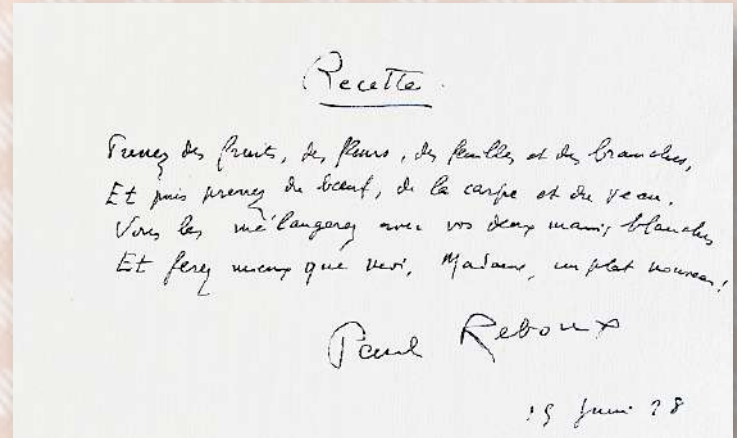 Recette
Prenez des fruits, des fleurs, des feuilles et des branches,
Et puis prenez du bœuf, de la carpe et du veau.
Vous les mélangerez avec vos deux mains blanches
Et ferez mieux que moi, Madame, un plat nouveau!
Paul Reboux